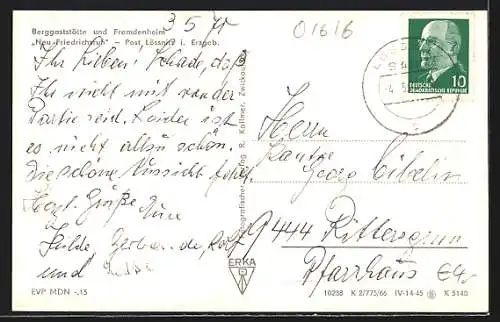 Berggaststätte und Fremdenheim
„Neu-Friedrichsruh" – Post Lössnitz i. Erzgeb.
3 5 71
01616
Ihr Lieben! Schade, daß
Ihr nicht mit von der
Partie seid. Leider ist
es nicht allzu schön.
die schöne Aussicht fehlt.
Herzl. Grüße
Hulde,
und
Herrn
Kantor
Georg
9444 Rittersgrün
Pfarrhaus
Fotografischer Verlag R. Kallmer, Zwickau
10
DEUTSCHE
DEMOKRATISCHE REPUBLIK
ERKA
EVP MDN -,15
10258 K 2/775/66 IV-14-45 K 5140